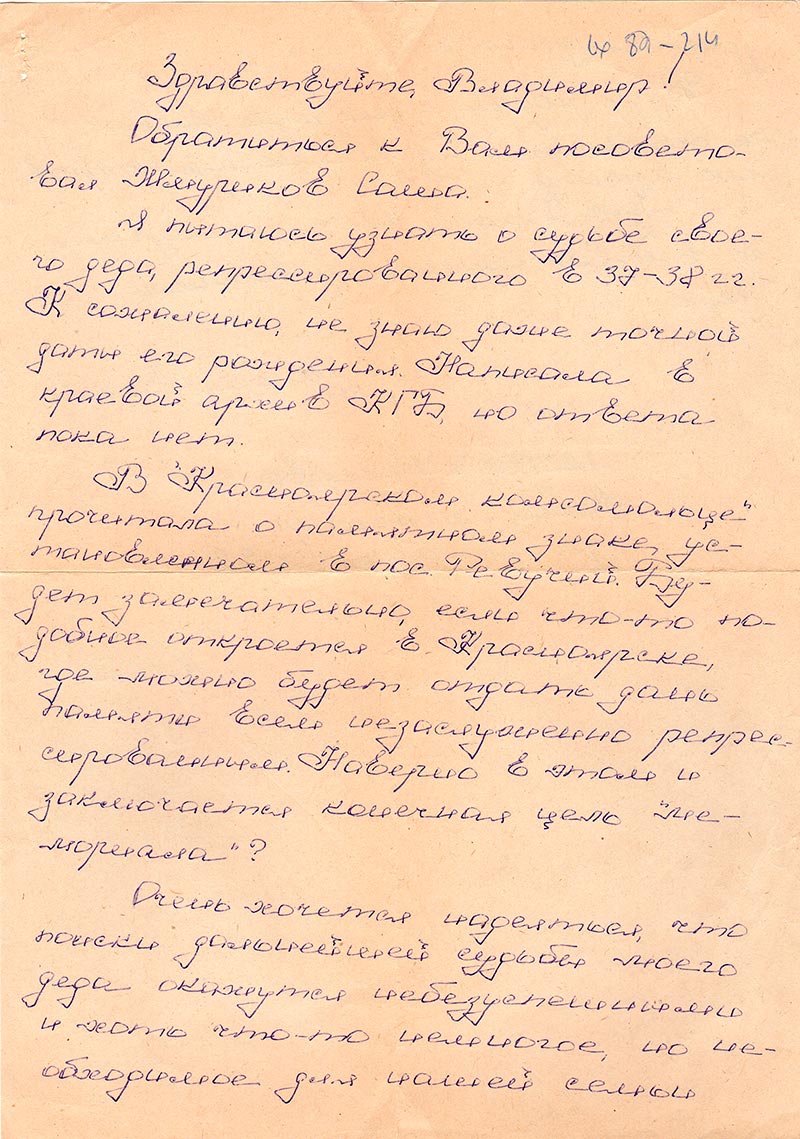 89-214
Здравствуйте, Владимир!
Обратиться к Вам посовето-
вал Жмуриков Саша.
Я пытаюсь узнать о судьбе свое-
го деда, репрессированного в 37-38 гг.
К сожалению, не знаю даже точной
даты его рождения. Написала в
краевой архив КГБ, но ответа
пока нет.
В "Красноярском комсомольце"
прочитала о памятном знаке, ус-
тановленном в пос. Ревучий. Бу-
дет замечательно, если что-то по-
добное откроется в Красноярске,
где можно будет отдать дань
памяти всем незаслуженно репрес-
сированным. Наверно в этом и
заключается конечная цель "Ме-
мориала"?
Очень хочется надеяться, что
поиски дальнейшей судьбы моего
деда окажутся небезуспешными
и хоть что-то немногое, но не-
обходимое для нашей семьи